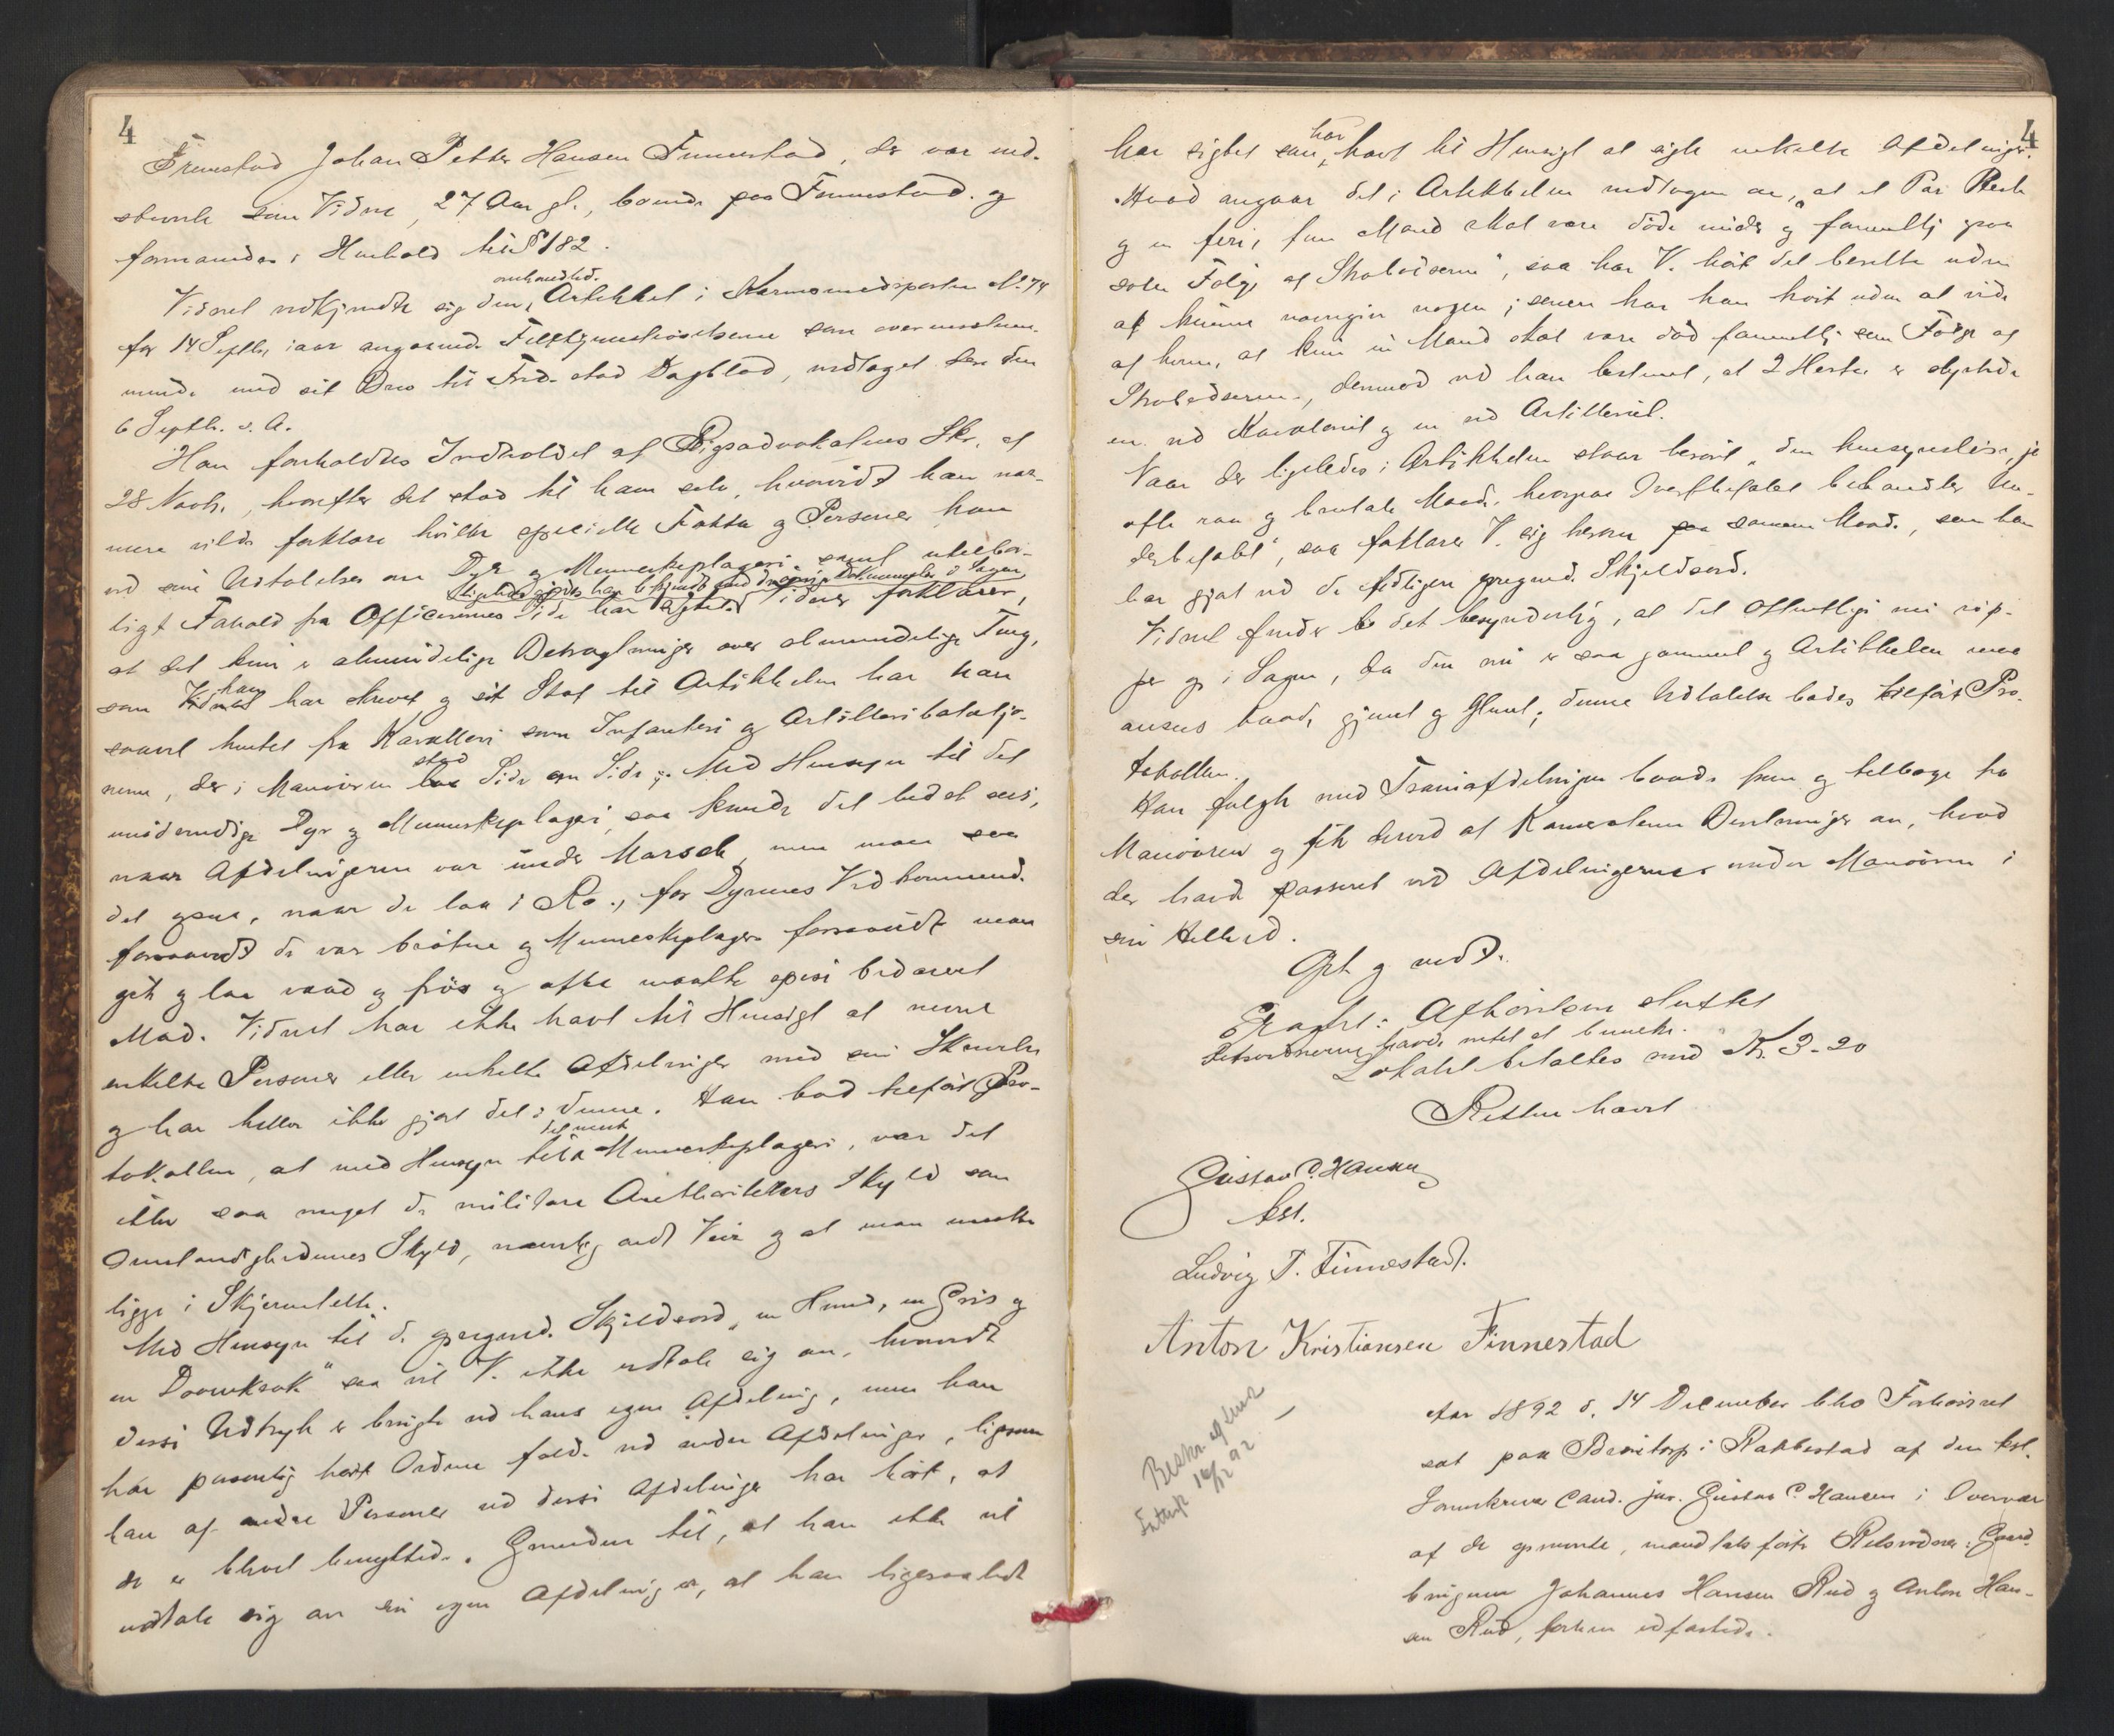 4
Fremstod Johan Petter Hansen Finnestad, der var ind-
stevnt som Vidne, 27 Aar gl., boende paa Finnestad og
formanedes i Henhold til § 182.
Vidnet vedkjendte sig den omhandlede Artikkel i No. 74
for 14 Septbr. iaar angaaende som overensstem-
mende med sit Brev til Fred.stad Dagblad, vedtaget den
6 Septb. s. A.
Han foreholdtes Indholdet af Rigsadvokatens Skr. af
28 Novb., hvorefter det stod til ham selv, hvorvidt han nær-
mere vilde forklare hvilke specielle Fakta og Personer han
ved sine Udtalelser om Dyr og Menneskeplageri samt utilbør-
ligt Forhold fra Officerernes Side har sigtet
Ligeledes gjordes han bekjendt med øvrige Dokumenter i Sagen
at det kun er almindelige Betragtninger over almindelige Ting,
som han har skrevet og sit Stof til Artikkelen har han
saavel hentet fra Kavalleri som Infanteri og Artilleribataljo-
nerne, der i Manøveren stod Side om Side. Med Hensyn til det
unødvendige Dyr og Menneskeplageri, saa kunde det lidet sees,
naar Afdelingerne var under Marsch, men man saa
det , naar de laa i Ro, for Dyrenes Vedkommende
forsaavidt de var brødne og Menneskeplageri forsaavidt man
gik og laa vaad og frøs og ofte maatte spise bedærvet
Mad. Vidnet har ikke havt til Hensigt at nevne
enkelte Personer eller enkelte Afdelinger med sin Skrivelse
og har heller ikke gjort det i denne. Han bad tilført Pro-
tokollen, at med Hensyn til det nevnte Menneskeplageri, var det
ikke saa meget de militære Autoriteters Skyld som
Omstændighedernes Skyld, navnlig ondt Veir og at man maatte
ligge i Skjermtelte.
Med Hensyn til de opregned. Skjeldsord „en Hund, en Gris og
en " saa vil V. ikke udtale sig om, hvorvidt
disse Udtryk er brugte ved hans egen Afdeling, men han
har personlig hørt Ordene falde ved andre Afdelinger, ligesom
han af andre Personer ved disse Afdelinger har hørt, at
de er blevet benyttede. Grunden til, at han ikke vil
udtale sig om sin egen Afdeling er, at han ligesaalidt
4
har sigtet som har havt til Hensigt at sigte enkelte Afdelinger.
Hvad angaar det i Artikkelen nedtagne om, „at et Par Heste
og en fire, fem Mand skal være døde under og formentlig
som Følge af Strabadserne", saa har V. hørt det berette uden
at kunne navngive nogen; senere har han hørt uden at vide
af hvem, at kun en Mand skal være død formentlig som Følge af
Strabadserne, derimod ved han bestemt, at 2 Heste er styrtede
en ved Kavaleriet og en ved Artilleriet.
Naar der ligeledes i Artikkelen staar berørt „den hensynsløse, ja
ofte raa og brutale Maade, hvorpaa Overbefalet behandler Un-
derbefalet", saa forklarer V. sig herom paa samme Maade, som han
har gjort ved de tidligere opregnede Skjeldsord.
Vidnet finder det besynderlig, at det Offentlige nu rip-
per op i Sagen, da den nu er saa gammel og Artikkelen maa
ansees baade gjemt og glemt; denne Udtalelse bades tilført Pro-
tokollen.
Han fulgte med Trainafdelingen baade frem og tilbage fra
Manøvren og fik derved af Kameraterne Beretninger om, hvad
der havde passeret ved Afdelingerne under Manøvren i
sin Helhed.
Opl. og vedt.
Fragtr.: Afhørelsen sluttet
Retsvidnerne havde intet at bemerke.
Lokalet betaltes med Kr. 3-20
Retten hævet
Gustav C. Hansen
kst.
Ludvig T. Finnestad.
Anton Kristiansen Finnestad
Beskr. af
16/12 92
Aar 1892 d. 14 December blev Forhørsret
sat paa i Rakkestad af den kst.
Sorenskriver Cand. jur. Gustav C. Hansen i Overvær
af de opnevnte, mandtalsførte Retsvidner: Gaard-
brugerne Johannes Hansen Rud og Anton Han-
sen Rud, forhen edfæstede.